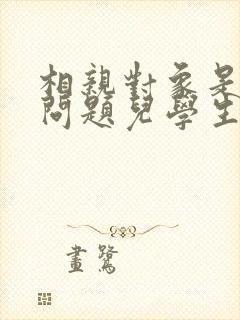 相親對象是
問題兒學生
畫鷺